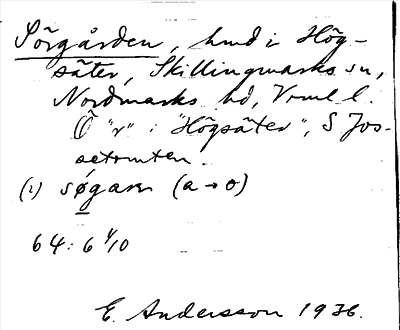 Sörgården, hmd i Hög-
säter, Skillingmarks sn,
Nordmarks hd, Vrml l.
Ö "r" i "Högsäter", S Jos-
setomten.
(i) søgaɳ (a → o)
64: 6 4/10
E. Andersson 1936.